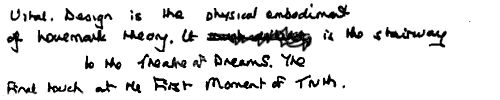 Vital. Design is the physical embodiment
of theory. It is the stairway
to the Theatre of Dreams. The
Final touch at the First Moment of Truth.